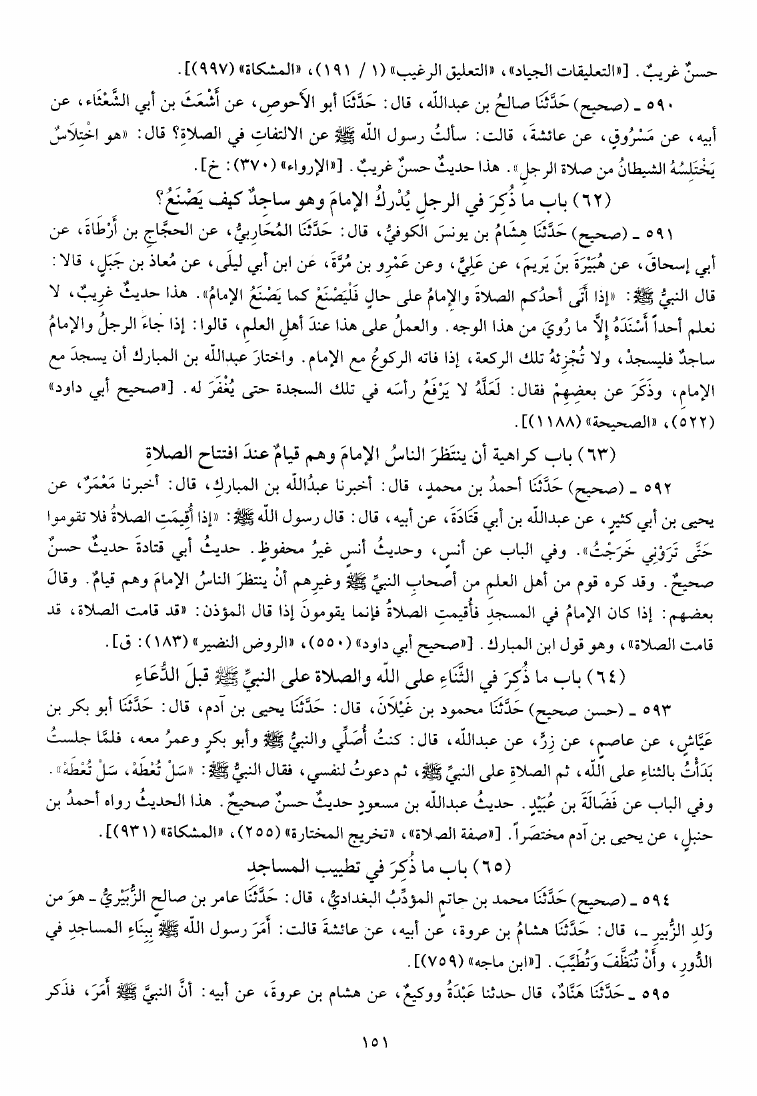 حسنٌ غريبٌ. [«التعليقات الجياد»، «التعليق الرغيب» (١ / ١٩١)، «المشكاة» (٩٩٧)].
٥٩٠ ـ (صحيح) حَدَّثنَا صالحُ بن عبدالله، قال: حَدَّثنَا أبو الأحوصِ، عن أَشْعَثَ بن أبي الشَّعْثَاء، عن
أبيه، عن مَسْرُوقٍ، عن عائشةَ، قالت: سألتُ رسول الله ﷺ عن الالتفاتِ في الصلاةِ؟ قال: «هو اخْتِلَاسٌ
يَخْتَلِسُهُ الشيطانُ من صلاة الرجلِ». هذا حديثٌ حسنٌ غريبٌ. [«الإرواء» (٣٧٠): خ].
(٦٢) باب ما ذُكِرَ في الرجلِ يُدْركُ الإمامَ وهو ساجِدٌ كيف يَصْنَعُ؟
٥٩١ ـ (صحيح) حَدَّثنَا هِشَامُ بن يونسَ الكوفيُّ، قال: حَدَّثنَا المُحَاربيُّ، عن الحجَّاجِ بن أَرْطَاةَ، عن
أبي إسحاقَ، عن هُبَيْرَةَ بنَ يَريمَ، عن عَلِيٍّ، وعن عَمْرِو بن مُرَّةَ، عن ابن أبي ليلَى، عن مُعاذ بن جَبَلٍ، قالا:
قال النبيُّ ﷺ: «إذا أَتَى أحدُكم الصلاةَ والإمامُ على حالٍ فَلْيَصْنَعْ كما يَصْنَعُ الإمامُ». هذا حديثٌ غريبٌ، لا
نعلم أحداً أَسْنَدَهُ إلَّا ما رُويَ من هذا الوجه. والعملُ على هذا عندَ أهلِ العلمِ، قالوا: إذا جاءَ الرجلُ والإمامُ
ساجدٌ فليسجدْ، ولا تُجْزِئهُ تلك الركعة، إذا فاته الركوعُ مع الإمام. واختارَ عبدالله بن المبارك أن يسجدَ مع
الإمامِ، وذَكَرَ عن بعضِهِمْ فقال: لَعَلَّهُ لا يَرْفَعُ رأسَه في تلك السجدة حتى يُغْفَرَ له. [«صحيح أبي داود»
(٥٢٢)، «الصحيحة» (١١٨٨)].
(٦٣) باب كراهية أن ينتَظرَ الناسُ الإمامَ وهم قيامٌ عندَ افتتاح الصلاةِ
٥٩٢ ـ (صحيح) حَدَّثنَا أحمدُ بن محمدٍ، قال: أخبرنا عبدُالله بن المباركِ، قال: أخبرنا مَعْمَرٌ، عن
يحيى بن أبي كثيرٍ، عن عبدالله بن أبي قَتَادَةَ، عن أبيه، قال: قال رسول الله ﷺ: «إذا أُقِيمَتِ الصلاةُ فلا تقوموا
حَتَّى تَرَوْنِي خَرَجْتُ». وفي الباب عن أنسٍ، وحديثُ أنسٍ غيرُ محفوظٍ. حديثُ أبي قتادةَ حديثٌ حسنٌ
صحيحٌ. وقد كره قوم من أهل العلمِ من أصحابِ النبيِّ ﷺ وغيرِهم أنْ ينتظرَ الناسُ الإمامَ وهم قيامٌ. وقالَ
بعضهم: إذا كان الإمامُ في المسجدِ فأُقيمتِ الصلاةُ فإنما يقومونَ إذا قال المؤذن: «قد قامت الصلاة، قد
قامت الصلاة»، وهو قول ابن المبارك. [«صحيح أبي داود» (٥٥٠)، «الروض النضير» (١٨٣): ق].
(٦٤) باب ما ذُكِرَ في الثَّنَاءِ على الله والصلاة على النبيِّ ﷺ قبلَ الدُّعَاءِ
٥٩٣ ـ (حسن صحيح) حَدَّثنَا محمود بن غَيْلَانَ، قال: حَدَّثنَا يحيى بن آدم، قال: حَدَّثنَا أبو بكر بن
عَيَّاشٍ، عن عاصمٍ، عن زِرٍّ، عن عبدالله، قال: كنتُ أُصَلِّي والنبيُّ ﷺ وأبو بكرٍ وعمرُ معه، فلمَّا جلستُ
بَدَأْتُ بالثناءِ على الله، ثم الصلاةِ على النبيِّ ﷺ، ثم دعوتُ لنفسي، فقال النبيُّ ﷺ: «سَلْ تُعْطَهْ، سَلْ تُعْطَهْ».
وفي الباب عن فَضَالَةَ بن عُبَيْدٍ. حديثُ عبدالله بن مسعودٍ حديثٌ حسنٌ صحيحٌ. هذا الحديثُ رواه أحمدُ بن
حنبلٍ، عن يحيى بن آدم مختصَراً. [«صفة الصلاة»، «تخريج المختارة» (٢٥٥)، «المشكاة» (٩٣١)].
(٦٥) باب ما ذُكِرَ في تطييب المساجدِ
٥٩٤ ـ (صحيح) حَدَّثنَا محمد بن حاتمٍ المؤدِّبُ البغداديُّ، قال: حَدَّثنَا عامر بن صالحٍ الزُّبَيْرِيُّ ـ هوَ من
وَلدِ الزُّبيرِ ـ، قال: حَدَّثنَا هشامُ بن عروة، عن أبيه، عن عائشةَ قالت: أَمَرَ رسول الله ﷺ بِبِنَاءِ المساجدِ في
الدُّورِ، وأَنْ تُنَظَّفَ وَتُطَيَّبَ. [«ابن ماجه» (٧٥٩)].
٥٩٥ ـ حَدَّثنَا هَنَّادٌ، قال حدثنا عَبْدَةُ ووكيعٌ، عن هشام بن عروةَ، عن أبيه: أنَّ النبيَّ ﷺ أَمَرَ، فذكر
١٥١